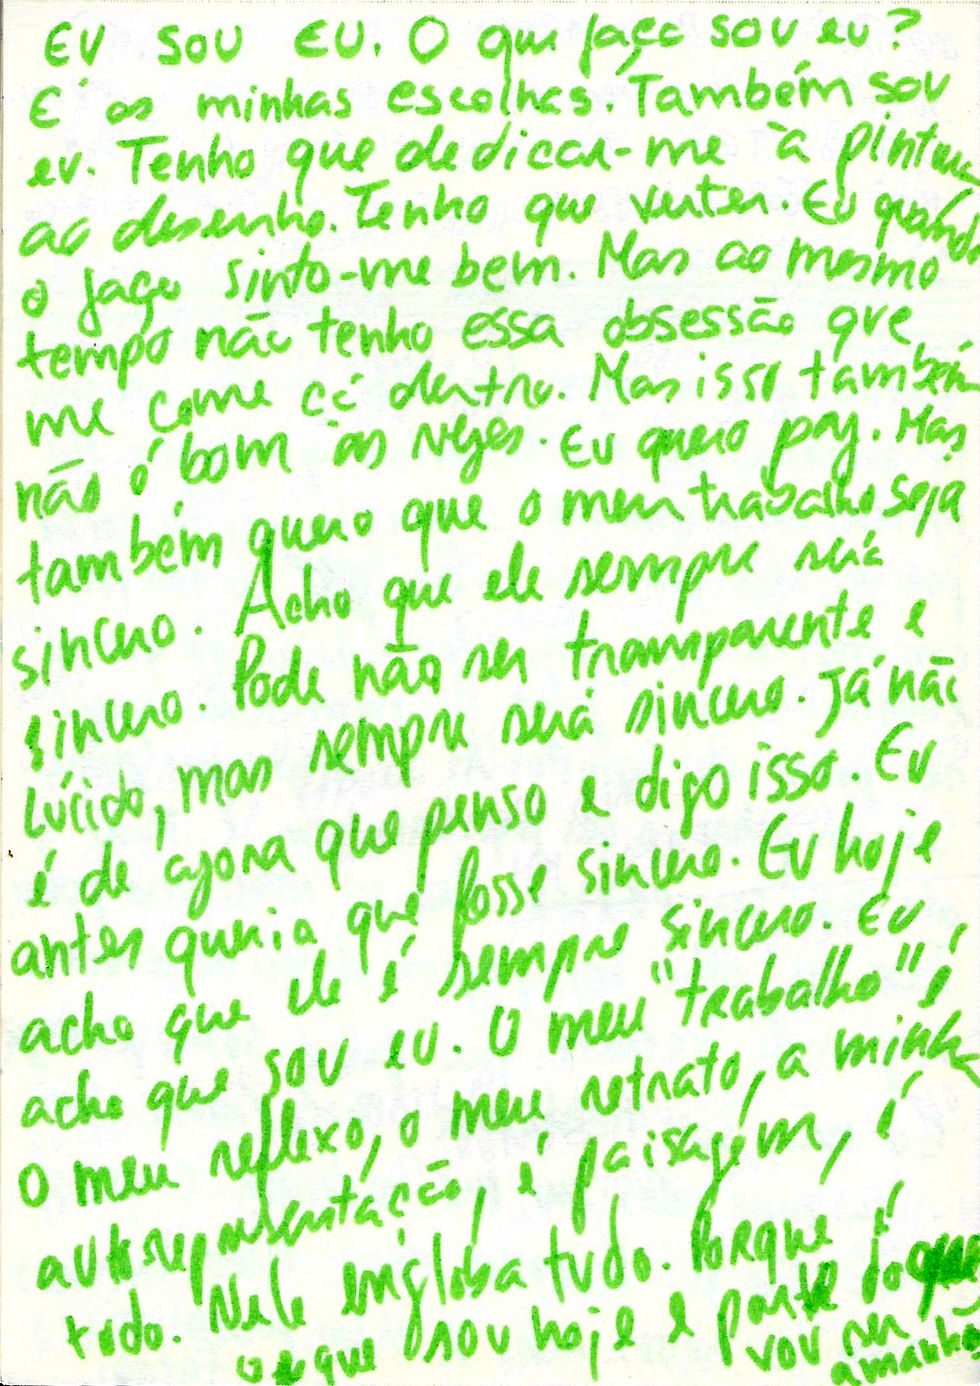 EU SOU EU. O que faço sou eu?
E as minhas escolhas. Também sou
eu. Tenho que dedicar-me à pintura
ao desenho. Tenho que verter. Eu quando
o faço sinto-me bem. Mas ao mesmo
tempo não tenho essa obsessão que
me come cá dentro. Mas isso também
não é bom às vezes. Eu quero paz. Mas
também quero que o meu trabalho seja
sincero. Acho que ele sempre será
sincero. Pode não ser transparente e
lúcido, mas sempre será sincero. Já não
é de agora que penso e digo isso. Eu
antes queria que fosse sincero. Eu hoje
acho que ele é sempre sincero. Eu
acho que sou eu. O meu "trabalho" é
o meu reflexo, o meu retrato, a minha
autorepresentação, é paisagem, é
tudo. Nele engloba tudo. Porque é
o que sou hoje e parte do que
vou ser
amanhã